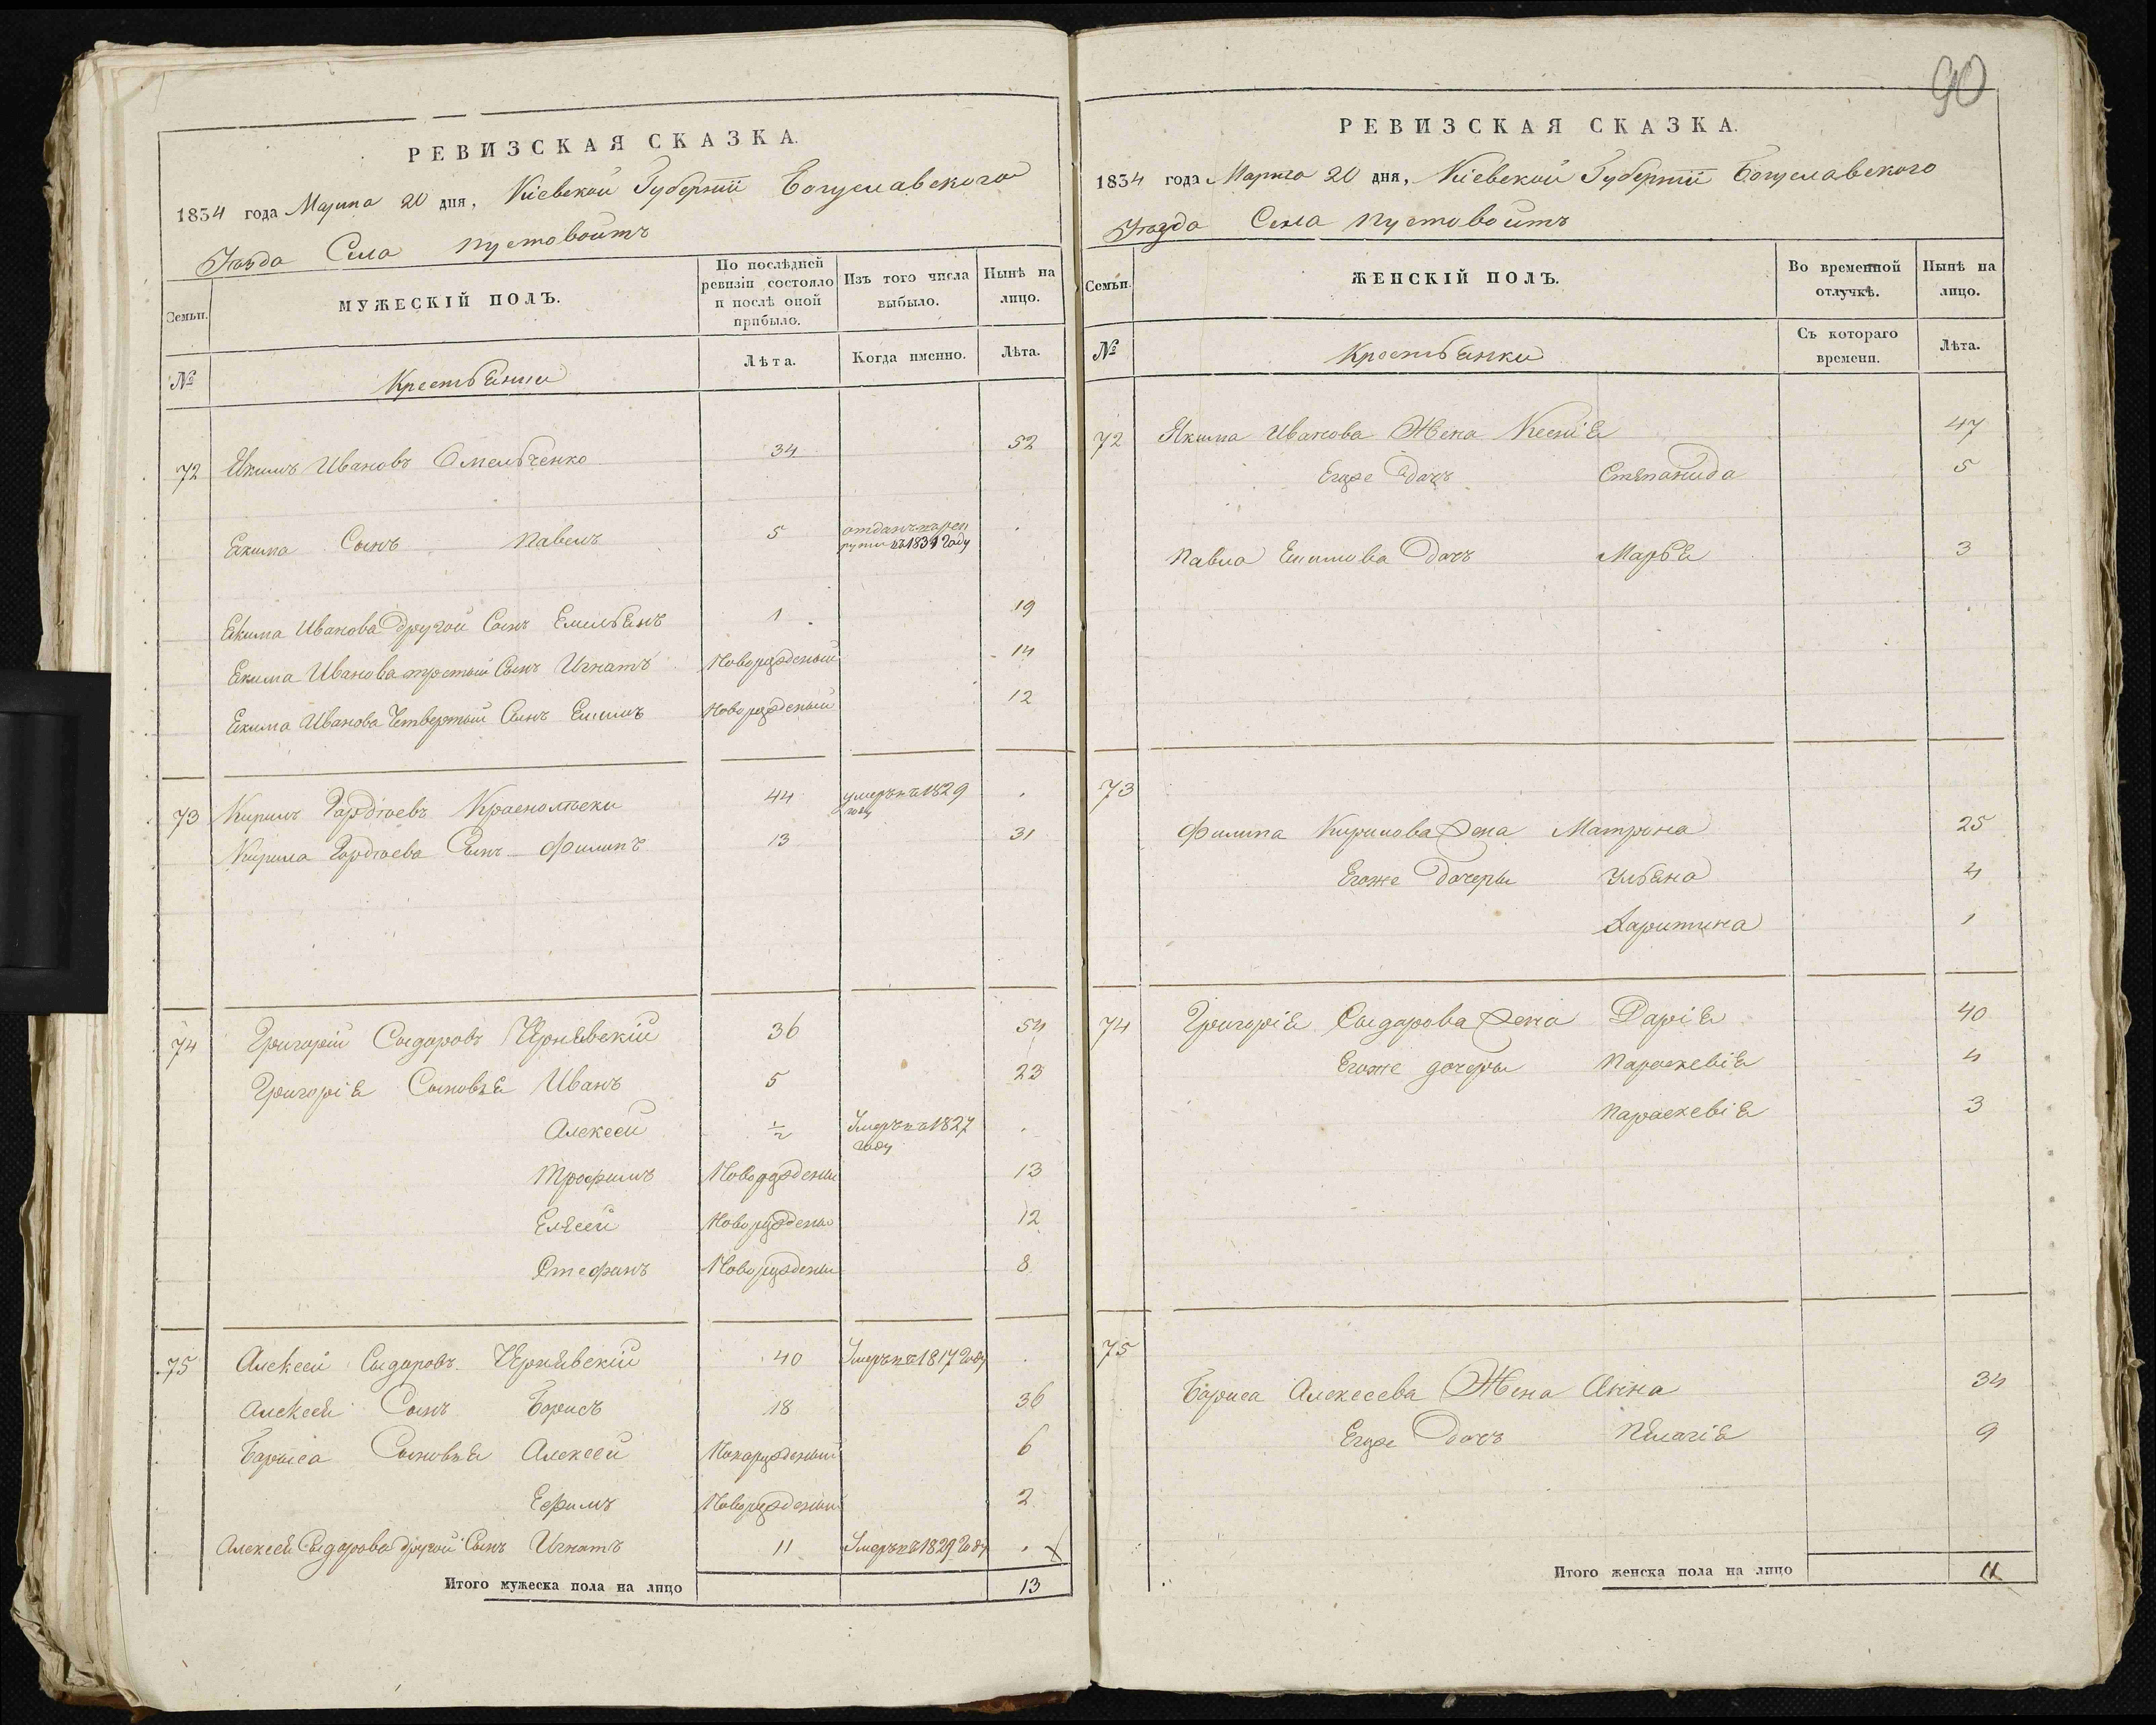 90
РЕВИЗСКАЯ СКАЗКА.
1834 года Марта 20 дня, Кіевской Губерніи Богуславского
Уезда Села Пустовойтъ
Семьи.
МУЖЕСКІЙ ПОЛЪ.
По послѣдней ревизіи состояло и послѣ оной прибыло.
Изъ того числа выбыло.
Нынѣ на лицо.
№
Крестьяние
Лѣта.
Когда именно.
Лѣта.
72 Якимъ Ивановъ Омельченко 34 52
Екима Сынъ Павелъ 5 отданъ въ рек
рути въ 1831 Году
Екима Иванова другой Сынъ Емельянъ 1 19
Екима Иванова третый Сынъ Игнатъ Новорожденый 14
Екима Иванова Четвертый Сынъ Новорожденый 12
73 Кирилъ Гордіевъ 44 умеръ въ 1829
году
Кирила Гордіева Сынъ Филипъ 13 31
74 Григорій Сыдоровъ Чернявскій 36 54
Григорія Сыновья Иванъ 5 23
Алексей ½ Умеръ въ 1827
Году
Трофимъ Новорожденый 13
Елѣсей Новорождены 12
Стефанъ Новорождены 8
75 Алексей Сыдоровъ Чернявскій 40 Умеръ въ 1817 Году
Алексея Сынъ Борисъ 18 36
Бориса Сыновья Алексей Новорожденый 6
Ефимъ Новорожденый 2
Алексея Сыдорова другой Сынъ Игнатъ 11 Умеръ въ 1829 Году
Итого мужеска пола на лицо 13
РЕВИЗСКАЯ СКАЗКА.
1834 года Марта 20 дня, Кіевской Губерніи Богуславского
Уезда Села Пустовойтъ
Семьи.
ЖЕНСКІЙ ПОЛЪ.
Во временной отлучкѣ.
Нынѣ на лицо.
№
Крестьянки
Съ котораго времени.
Лѣта.
72 Якима Иванова Жена Ксенія 47
Егоже дочъ Степанида 5
Павла Екимова дочъ Марья 3
73
Филипа Кирилова жена Матрона 25
Егоже дочеры Ульяна 4
Харитина 1
74 Григорія Сыдорова жена Дарія 40
Егоже дочеры Параскевія 4
Параскевія 3
75
Бориса Алексеева Жена Анна 34
Егоже дочъ Пелагія 9
Итого женска пола на лицо 11